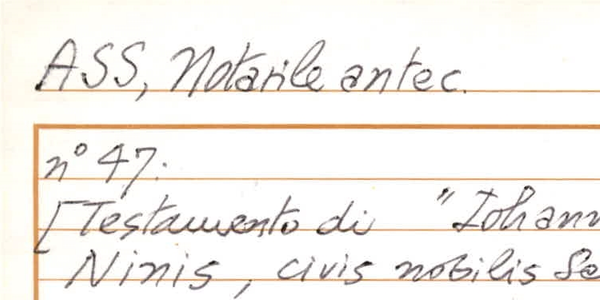 ASS, Notarile antec.
n° 47.
[Testamento di "Iohann
Ninis, civis nobilis Se